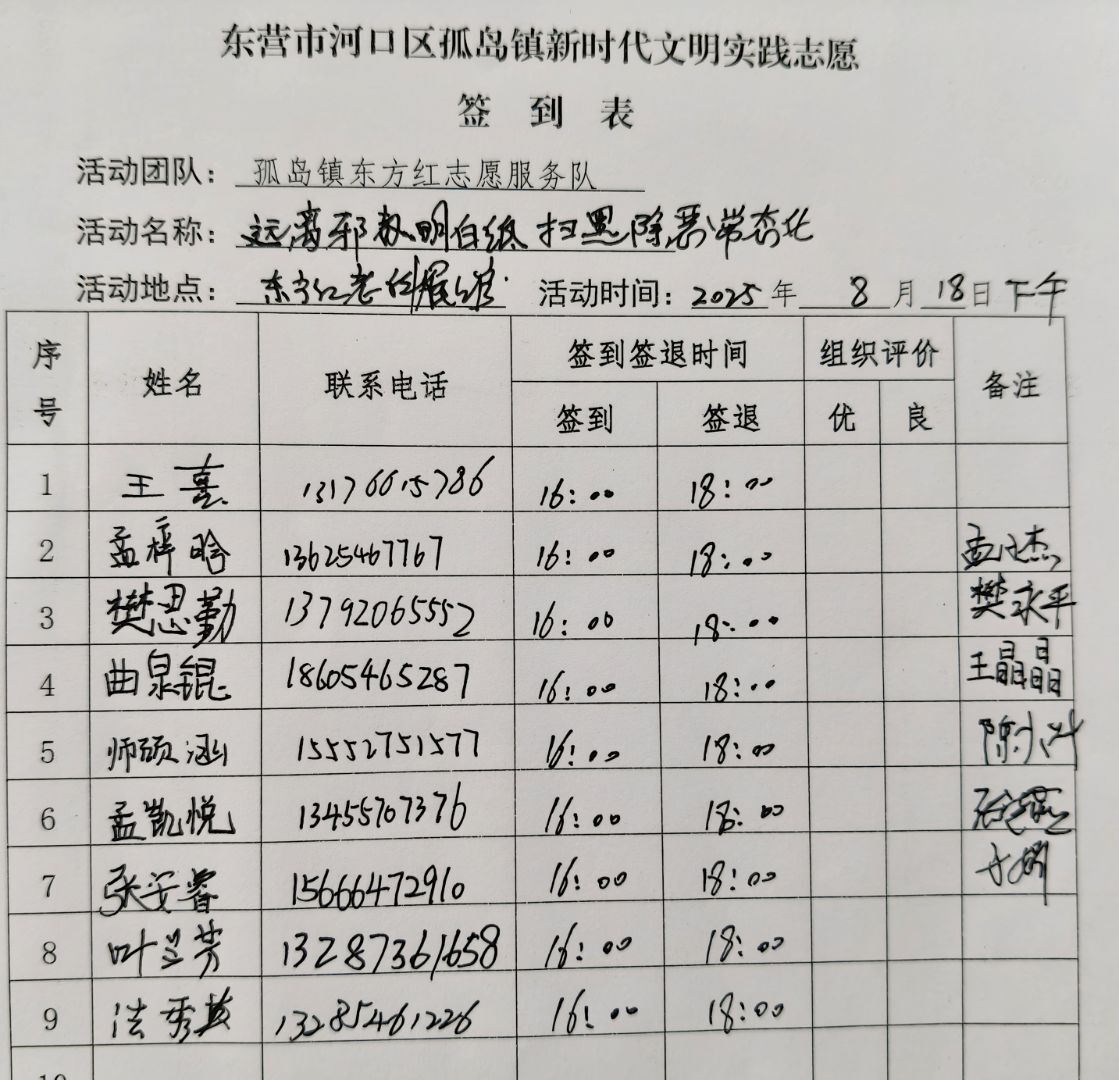 东营市河口区孤岛镇新时代文明实践志愿
签 到 表
活动团队：孤岛镇东方红志愿服务队
活动名称：远离邪教明白纸 扫黑除恶常态化
活动地点：东方红老 展馆 活动时间：2025年 8月18日下午
序号 姓名 联系电话 签到签退时间 组织评价 备注
签到 签退 优 良
1 王熹 13176615786 16:00 18:00
2 孟梓晗 13625467767 16:00 18:00 孟 杰
3 樊思勤 13792065552 16:00 18:00 樊永平
4 曲泉锟 18605465287 16:00 18:00 王晶晶
5 师硕涵 15552751577 16:00 18:00 陈
6 孟凯悦 13455707376 16:00 18:00
7 张安睿 15666472910 16:00 18:00
8 叶兰芳 13287361658 16:00 18:00
9 法秀英 13285461226 16:00 18:00
10